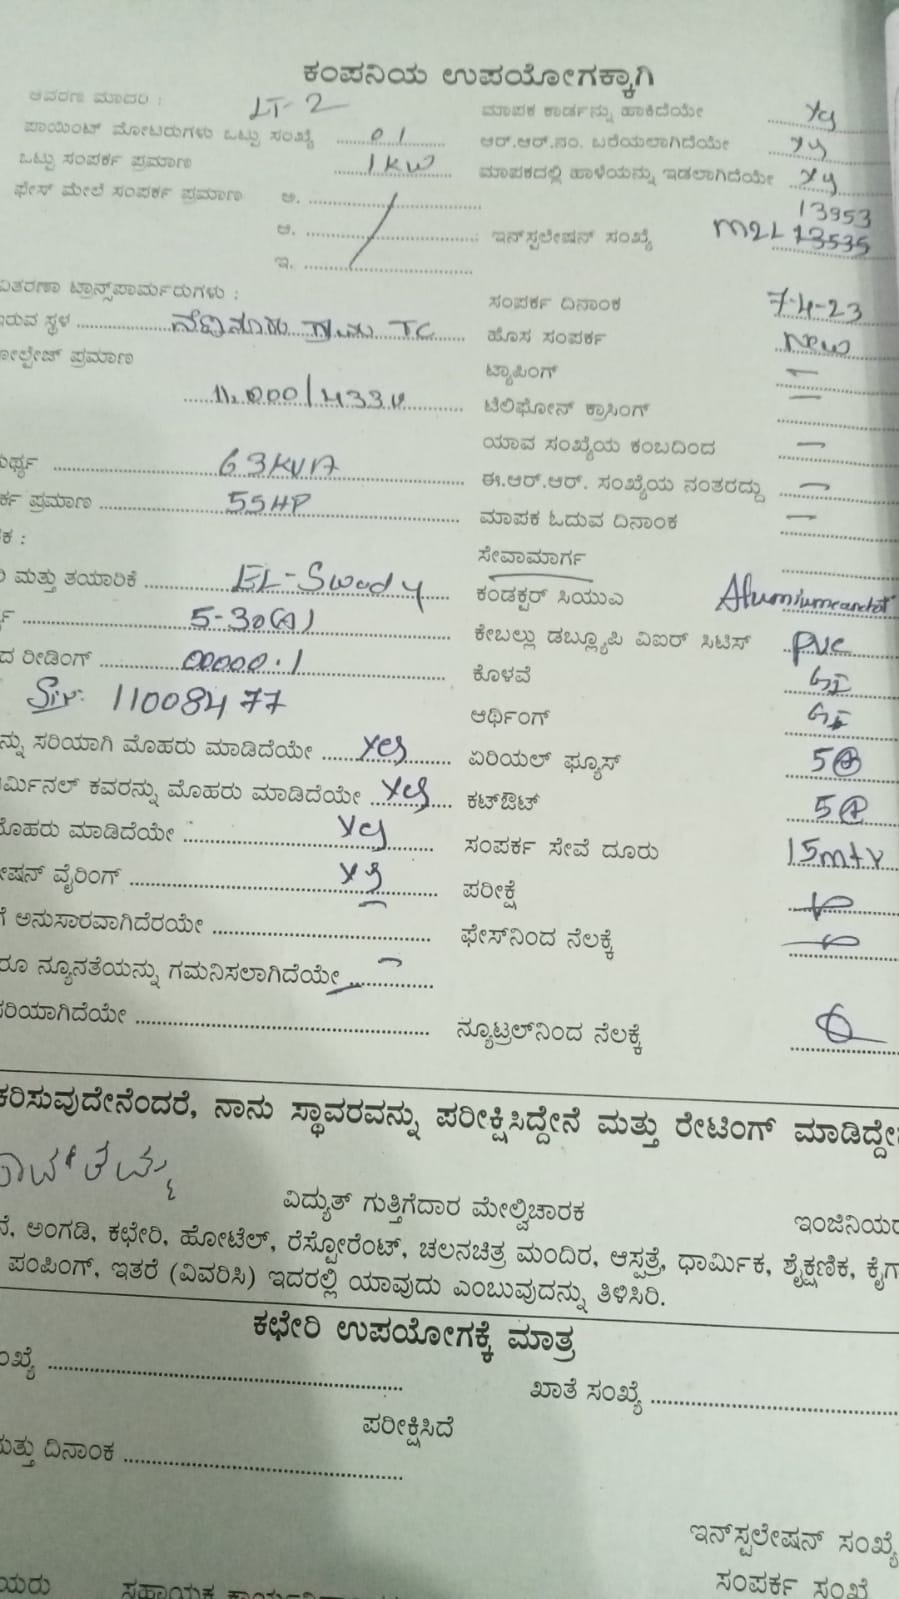 ಕಂಪನಿಯ ಉಪಯೋಗಕ್ಕಾಗಿ
ಆವರಣ ಮಾದರಿ : LT-2 ಮಾಪಕ ಕಾರ್ಡನ್ನು ಹಾಕಿದೆಯೇ
ಪಾಯಿಂಟ್ ಮೋಟರುಗಳು ಒಟ್ಟು ಸಂಖ್ಯೆ 01 ಆರ್.ಆರ್.ನಂ. ಬರೆಯಲಾಗಿದೆಯೇ
ಒಟ್ಟು ಸಂಪರ್ಕ ಪ್ರಮಾಣ 1KW ಮಾಪಕದಲ್ಲಿ ಹಾಳೆಯನ್ನು ಇಡಲಾಗಿದೆಯೇ
ಫೇಸ್ ಮೇಲೆ ಸಂಪರ್ಕ ಪ್ರಮಾಣ ಅ. 13953
ಆ. ಇನ್‌ಸ್ಟಲೇಷನ್ ಸಂಖ್ಯೆ M2L 13535
ಇ.
ವಿತರಣಾ ಟ್ರಾನ್ಸ್‌ಪಾರ್ಮರುಗಳು : ಸಂಪರ್ಕ ದಿನಾಂಕ 7-4-23
ಇರುವ ಸ್ಥಳ TC ಹೊಸ ಸಂಪರ್ಕ New
ವೋಲ್ಟೇಜ್ ಪ್ರಮಾಣ ಟ್ಯಾಪಿಂಗ್ –
11,000/433V ಟೆಲಿಫೋನ್ ಕ್ರಾಸಿಂಗ್ –
ಯಾವ ಸಂಖ್ಯೆಯ ಕಂಬದಿಂದ –
63KVA ಈ.ಆರ್.ಆರ್. ಸಂಖ್ಯೆಯ ನಂತರದ್ದು –
55HP ಮಾಪಕ ಓದುವ ದಿನಾಂಕ –
ಸೇವಾಮಾರ್ಗ
ಮತ್ತು ತಯಾರಿಕೆ ಕಂಡಕ್ಟರ್ ಸಿಯುಎ
5-30(A) ಕೇಬಲ್ಲು ಡಬ್ಲ್ಯೂಪಿ ವಿಐರ್ ಸಿಟಿಸ್ PVC
ರೀಡಿಂಗ್ 00000.1 ಕೊಳವೆ GI
11008477 ಆರ್ಥಿಂಗ್ GI
ಸರಿಯಾಗಿ ಮೊಹರು ಮಾಡಿದೆಯೇ Yes ಏರಿಯಲ್ ಫ್ಯೂಸ್ 5A
ಕವರನ್ನು ಮೊಹರು ಮಾಡಿದೆಯೇ Yes ಕಟ್‌ಔಟ್ 5A
ಮೊಹರು ಮಾಡಿದೆಯೇ Yes ಸಂಪರ್ಕ ಸೇವೆ ದೂರು 15mtr
ವೈರಿಂಗ್ ಪರೀಕ್ಷೆ
ಅನುಸಾರವಾಗಿದೆರಯೇ ಫೇಸ್‌ನಿಂದ ನೆಲಕ್ಕೆ
ನ್ಯೂನತೆಯನ್ನು ಗಮನಿಸಲಾಗಿದೆಯೇ
ನ್ಯೂಟ್ರಲ್‌ನಿಂದ ನೆಲಕ್ಕೆ
ನಾನು ಸ್ಥಾವರವನ್ನು ಪರೀಕ್ಷಿಸಿದ್ದೇನೆ ಮತ್ತು ರೇಟಿಂಗ್
ವಿದ್ಯುತ್ ಗುತ್ತಿಗೆದಾರ ಮೇಲ್ವಿಚಾರಕ
ಅಂಗಡಿ, ಕಛೇರಿ, ಹೋಟೆಲ್, ರೆಸ್ಟೋರೆಂಟ್, ಚಲನಚಿತ್ರ ಮಂದಿರ, ಆಸ್ಪತ್ರೆ, ಧಾರ್ಮಿಕ, ಶೈಕ್ಷಣಿಕ,
ಪಂಪಿಂಗ್, ಇತರೆ (ವಿವರಿಸಿ) ಇದರಲ್ಲಿ ಯಾವುದು ಎಂಬುವುದನ್ನು ತಿಳಿಸಿರಿ.
ಕಛೇರಿ ಉಪಯೋಗಕ್ಕೆ ಮಾತ್ರ
ಖಾತೆ ಸಂಖ್ಯೆ
ಪರೀಕ್ಷಿಸಿದೆ
ದಿನಾಂಕ
ಇನ್‌ಸ್ಟಲೇಷನ್ ಸಂಖ್ಯೆ
ಸಂಪರ್ಕ ಸಂಖ್ಯೆ